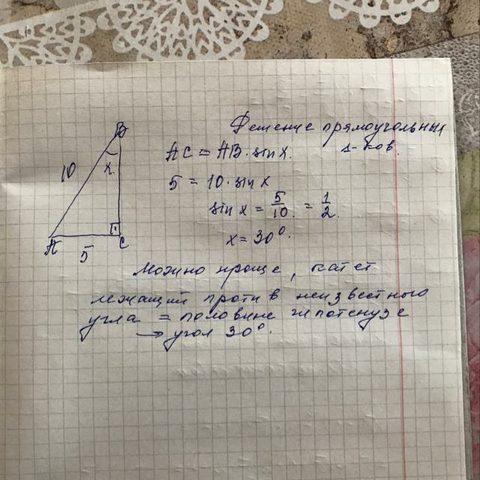 Решение прямоугольных
Δ-ков.
B
10
x
A
5
C
AC = AB · sin x.
5 = 10 · sin x
sin x = 5/10 = 1/2.
x = 30°.
Можно проще, катет
лежащий против неизвестного
угла = половине гипотенузе
→ угол 30°.